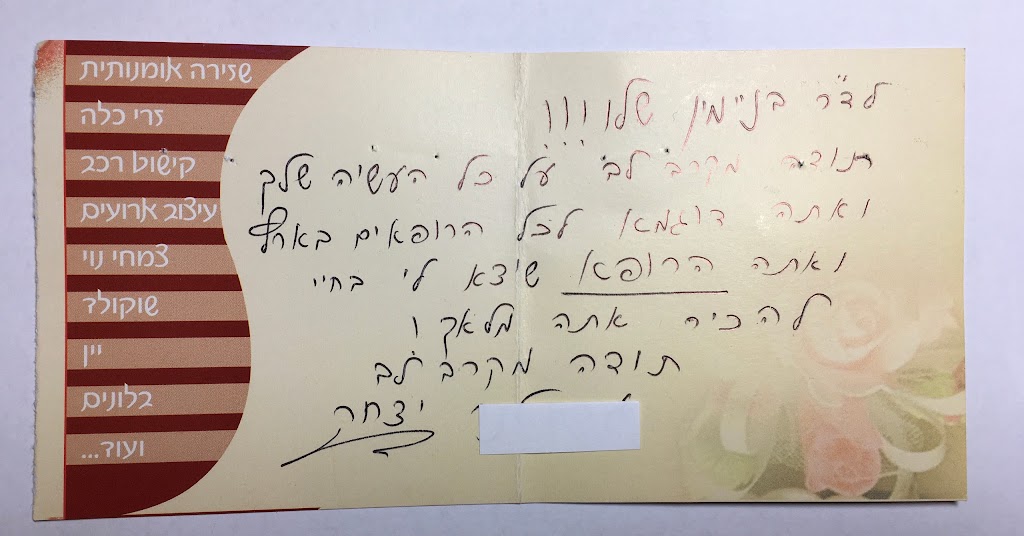 לד"ר בניימין שלו!!!
תודה מקרב לב על כל העשיה שלך
ואתה דוגמא לכל הרופאים בארץ
ואתה הרופא שיצא לי בחיי
להכיר אתה מלאך
תודה מקרב לב
יצחק
שזירה אומנותית
זרי כלה
קישוט רכב
עיצוב ארועים
צמחי נוי
שוקולד
יין
בלונים
ועוד...